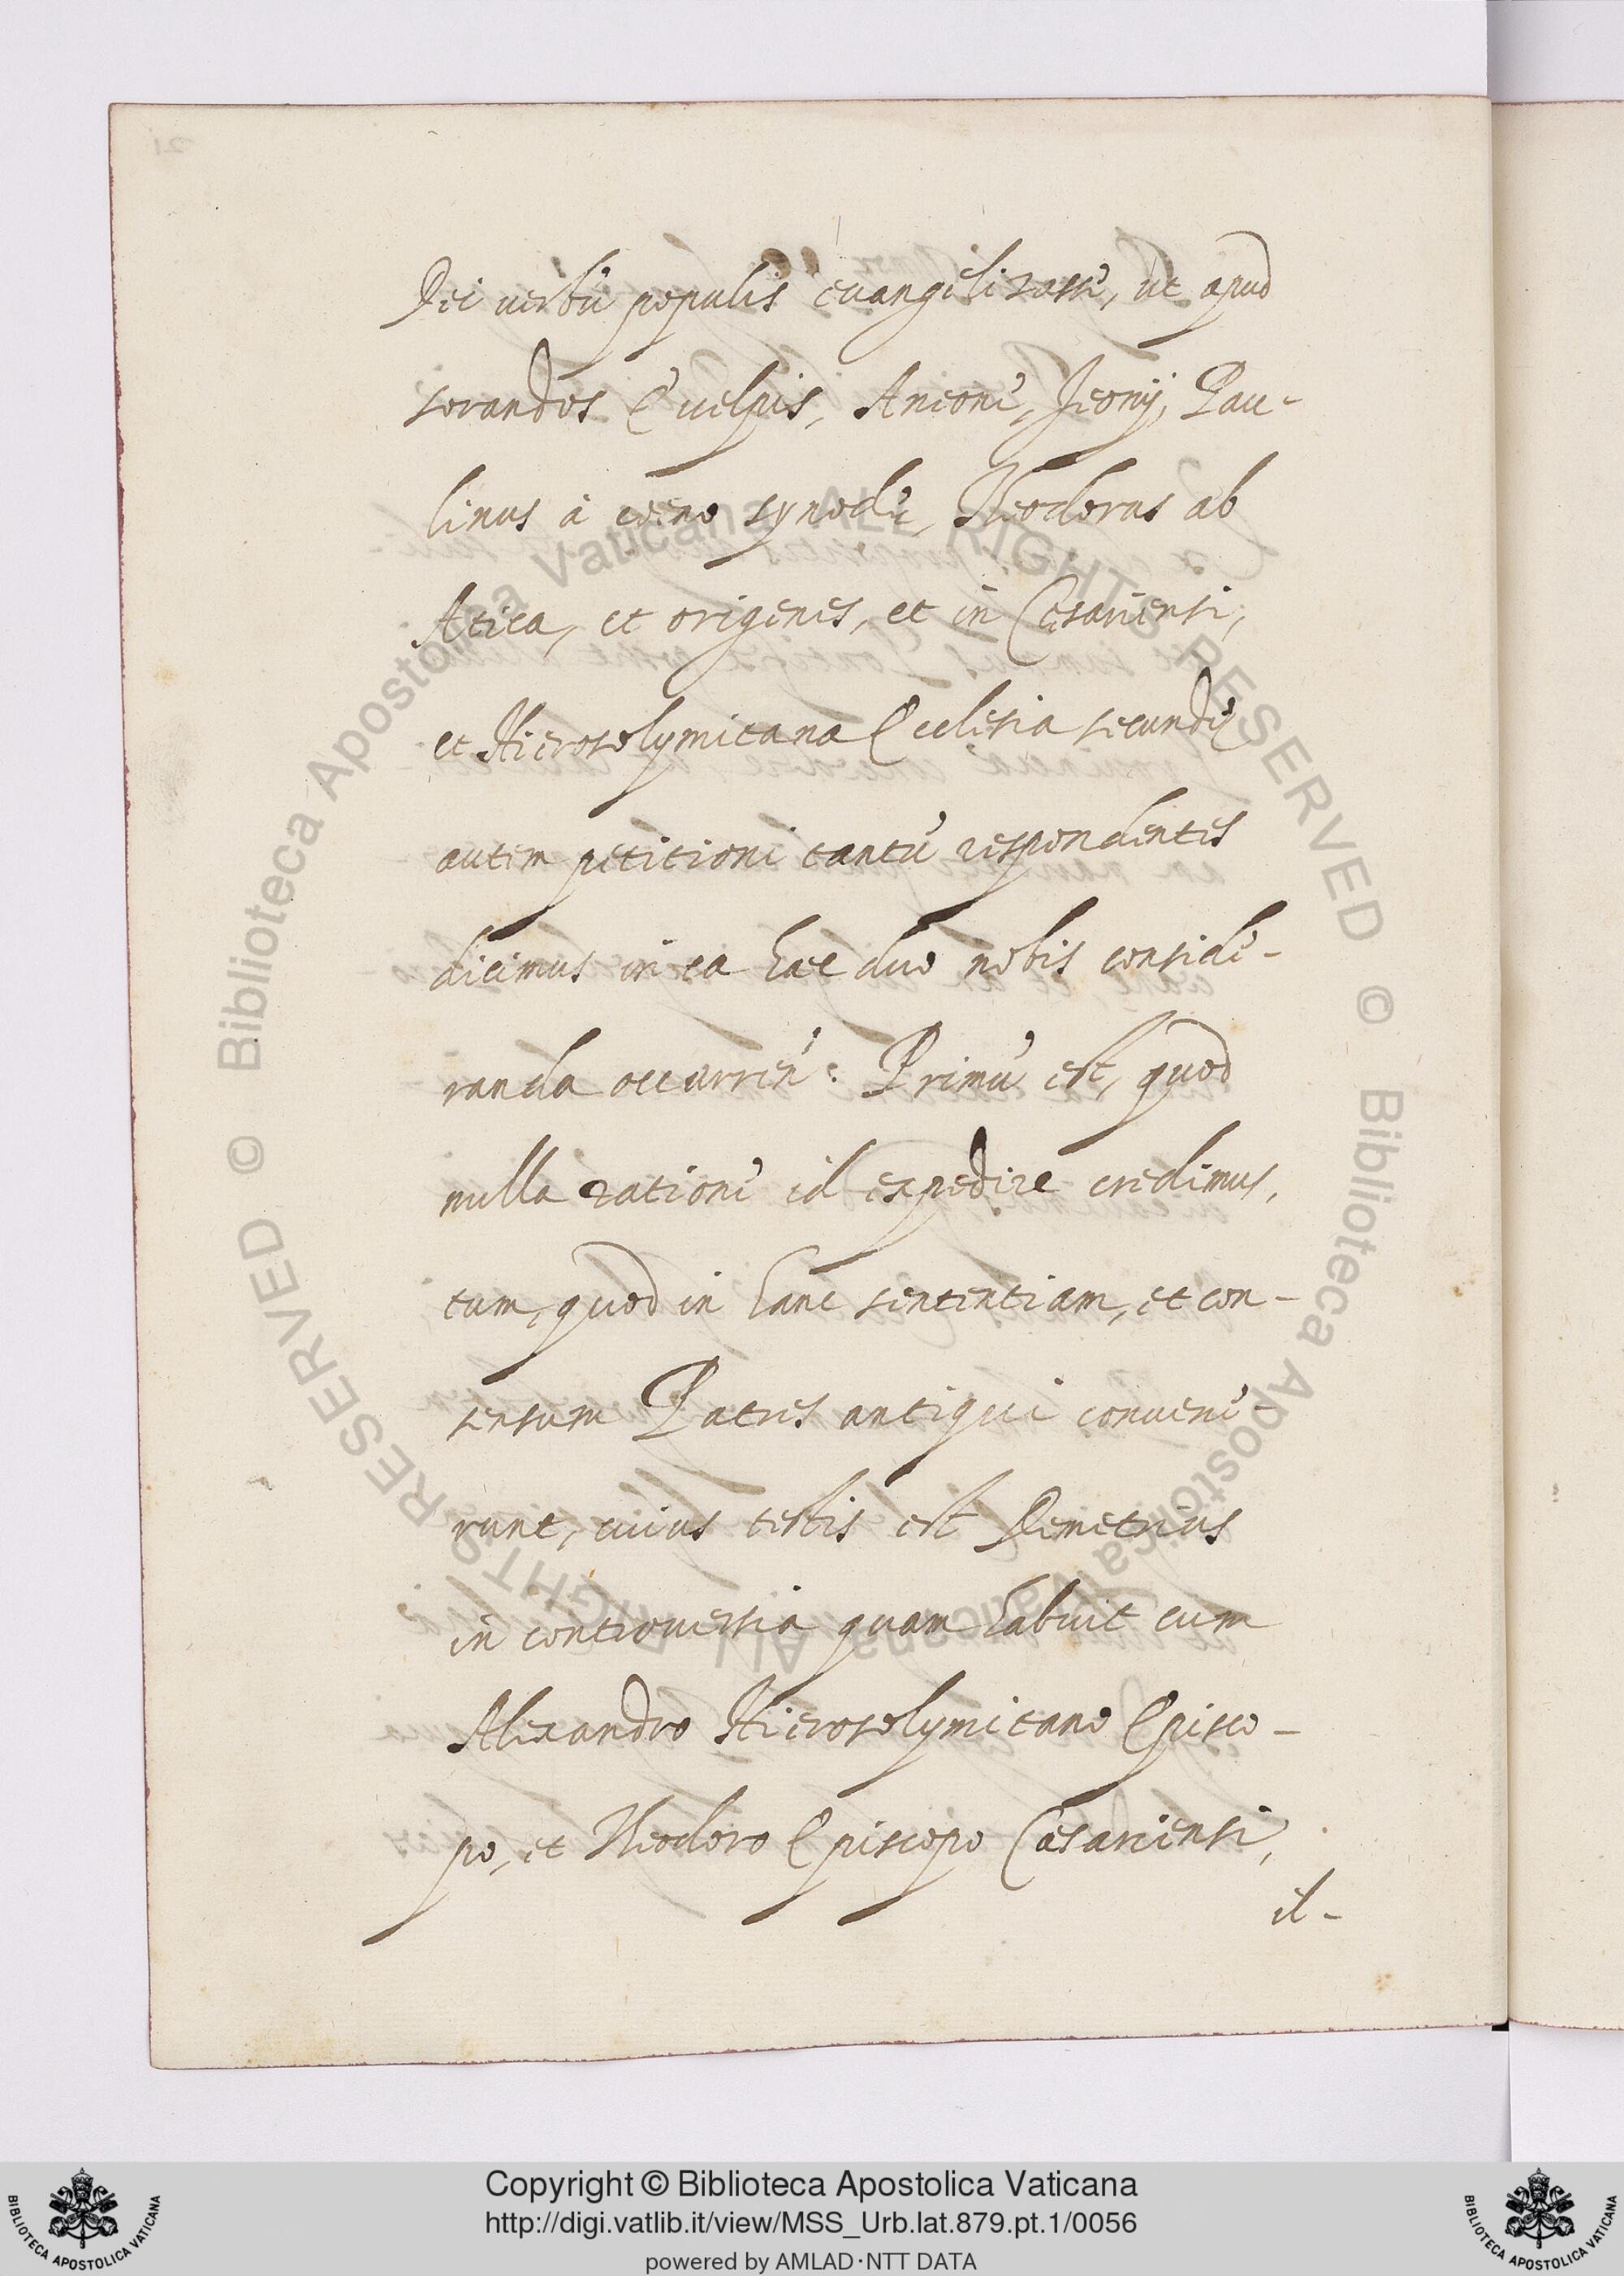 Dei uerbũ populis euangelizasse, ut apud
sorandos Euelpis, Aneone, Jeonij, Pau-
linus à coeno synodũ, Theodorus ab
Atica, et origenes, et in Cesariensi,
et Hierosolymitana Ecclesia secundę
autem petitioni tantũ respondentes
dicimus in ea haec duo nobis conside-
randa occurreñ: Primũ est, quod
nulla ratione id expedire credimus,
tum, quod in hanc sententiam, et con-
sensum Patres antiqui conuene-
runt, cuius testis est Demetrius
in controuersia quam habuit cum
Alexandro Hierosolymitano Episco-
po, et Theodoro Episcopo Caesariensi,
il-
© Biblioteca Apostolica Vaticana ALL RIGHTS RESERVED
© Biblioteca Apostolica Vaticana ALL RIGHTS RESERVED
BIBLIOTECA APOSTOLICA VATICANA
Copyright © Biblioteca Apostolica Vaticana
http://digi.vatlib.it/view/MSS_Urb.lat.879.pt.1/0056
powered by AMLAD·NTT DATA
BIBLIOTECA APOSTOLICA VATICANA